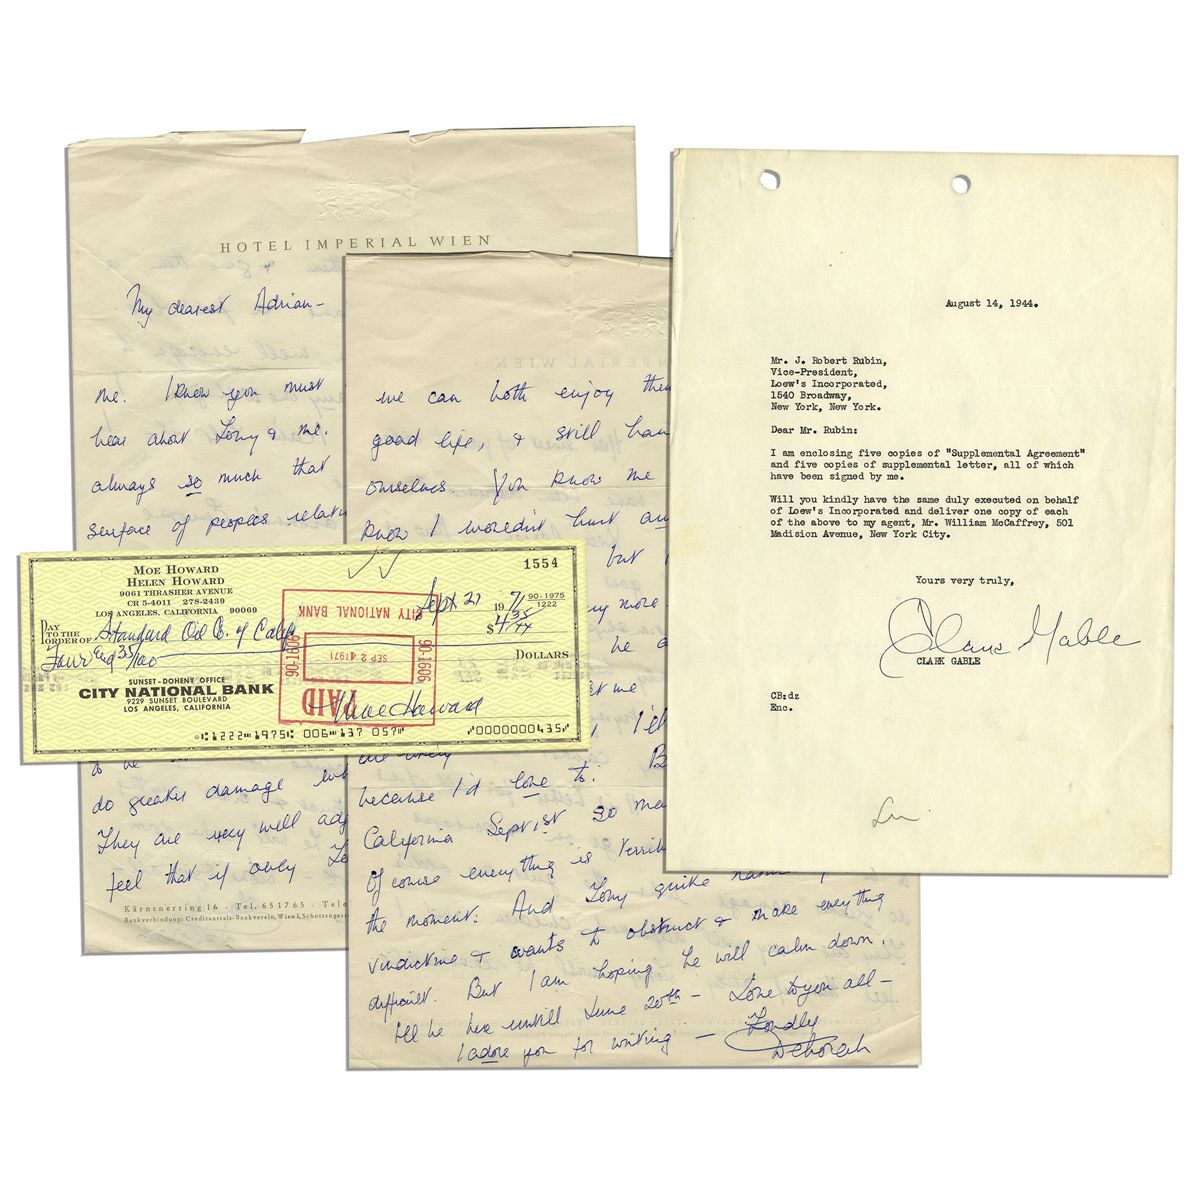 HOTEL IMPERIAL WIEN
My dearest Adrian-
me. I know you must
hear about Tony & me.
always so much that
surface of peoples relat
do greater damage
They are very well adj
feel that if only
Kärntnerring 16 · Tel. 651765 · Tele
Bankverbindung: Creditanstalt-Bankverein, Wien I, Schottengass
we can both enjoy the
good life, & still hav
ourselves You know me
know I wouldn't hurt an
but I
ny more.
he a
let me
I'll
because I'd love to.
California Sept 1st so ma
Of course everything is terrib
the moment. And Tony quite
vindictive & wants to obstruct & make everything
difficult. But I am hoping he will calm down.
I'll be here untill June 20th - Love to you all -
I adore you for writing - Fondly
Deborah
MOE HOWARD
HELEN HOWARD
9061 THRASHER AVENUE
CR 5-4011 278-2439
LOS ANGELES, CALIFORNIA 90069
1554
Sept 21 1971
90-1975
1222
PAY
TO THE
ORDER OF Standard Oil Co. of Calif
$4 35/xx
Four and 35/100 DOLLARS
SUNSET-DOHENY OFFICE
CITY NATIONAL BANK
9229 SUNSET BOULEVARD
LOS ANGELES, CALIFORNIA
Moe Howard
CITY NATIONAL BANK
90-1606
SEP 24 1971
90-1606
PAID
⑆1222⑉1975⑆ 006⑉137 057⑈ ⑈0000000435⑈
August 14, 1944.
Mr. J. Robert Rubin,
Vice-President,
Loew's Incorporated,
1540 Broadway,
New York, New York.
Dear Mr. Rubin:
I am enclosing five copies of "Supplemental Agreement"
and five copies of supplemental letter, all of which
have been signed by me.
Will you kindly have the same duly executed on behalf
of Loew's Incorporated and deliver one copy of each
of the above to my agent, Mr. William McCaffrey, 501
Madision Avenue, New York City.
Yours very truly,
Clark Gable
CLARK GABLE
CB:dz
Enc.